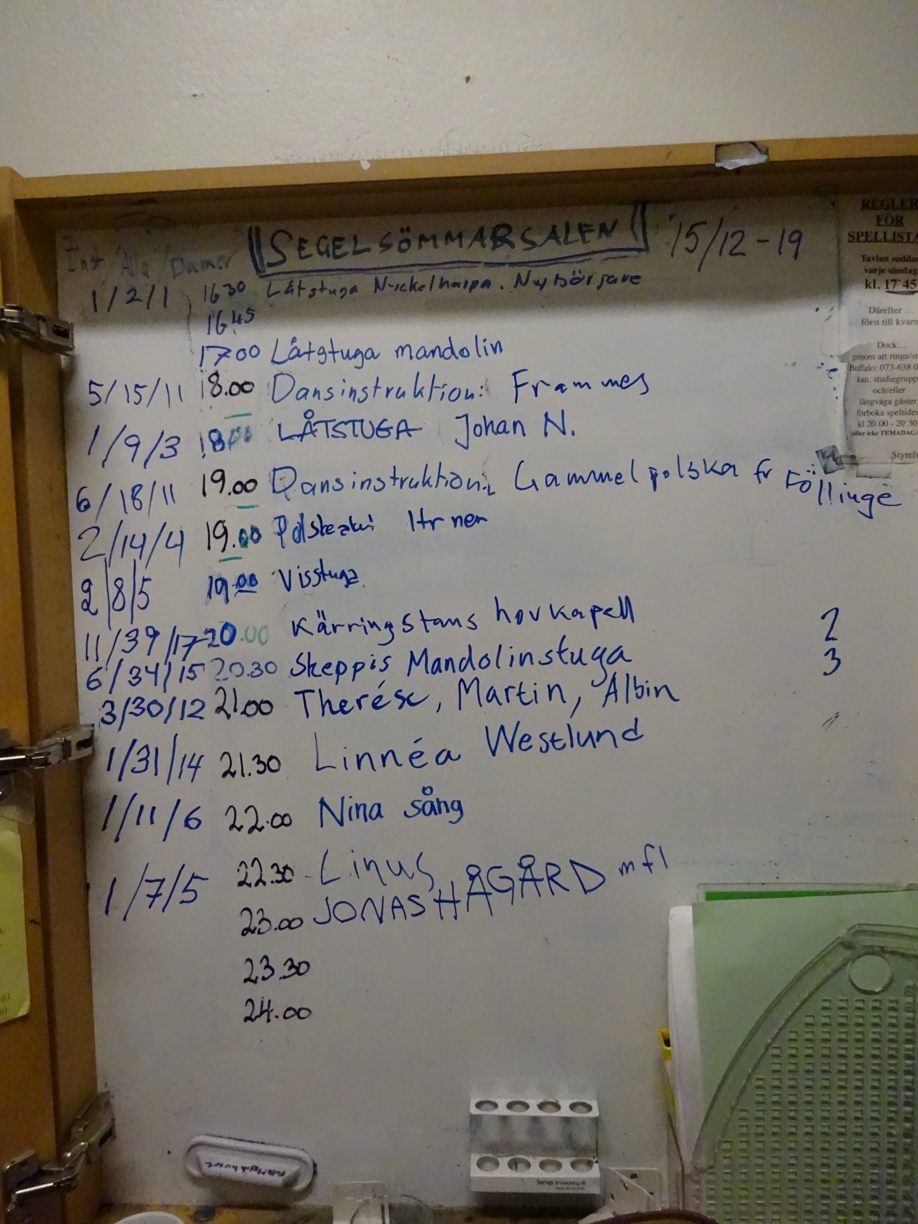 Inst/Alla/Damer SEGELSÖMMARSALEN 15/12-19
1/2/1 16.30 Låtstuga Nyckelharpa. Nybörjare
16.45
17.00 Låtstuga mandolin
5/15/11 18.00 Dansinstruktion: Frammes
1/9/3 18.00 LÅTSTUGA Johan N.
6/18/11 19.00 Dansinstruktion: Gammelpolska fr Föllinge
2/14/4 19.00
2/8/5 19.00 Visstuga
11/39/17 20.00 Kärringstans hovkapell 2
6/34/15 20.30 Skeppis Mandolinstuga 3
3/30/12 21.00 Therése, Martin, Albin
1/31/14 21.30 Linnéa Westlund
1/11/6 22.00 Nina sång
1/7/5 22.30 Linus
23.00 JONAS HÅGÅRD mfl
23.30
24.00
REGLER
FÖR
SPELLISTA
Tavlan suddas
varje söndag
kl. 17.45
Därefter ...
först till kvarn
Dock...
genom att ringa
Buffalo: 073-638 0
kan, studiegrupp
och/eller
långväga gäster
förboka speltider
kl 20.00 - 20.30
eller icke TEMADAGA
Styrels